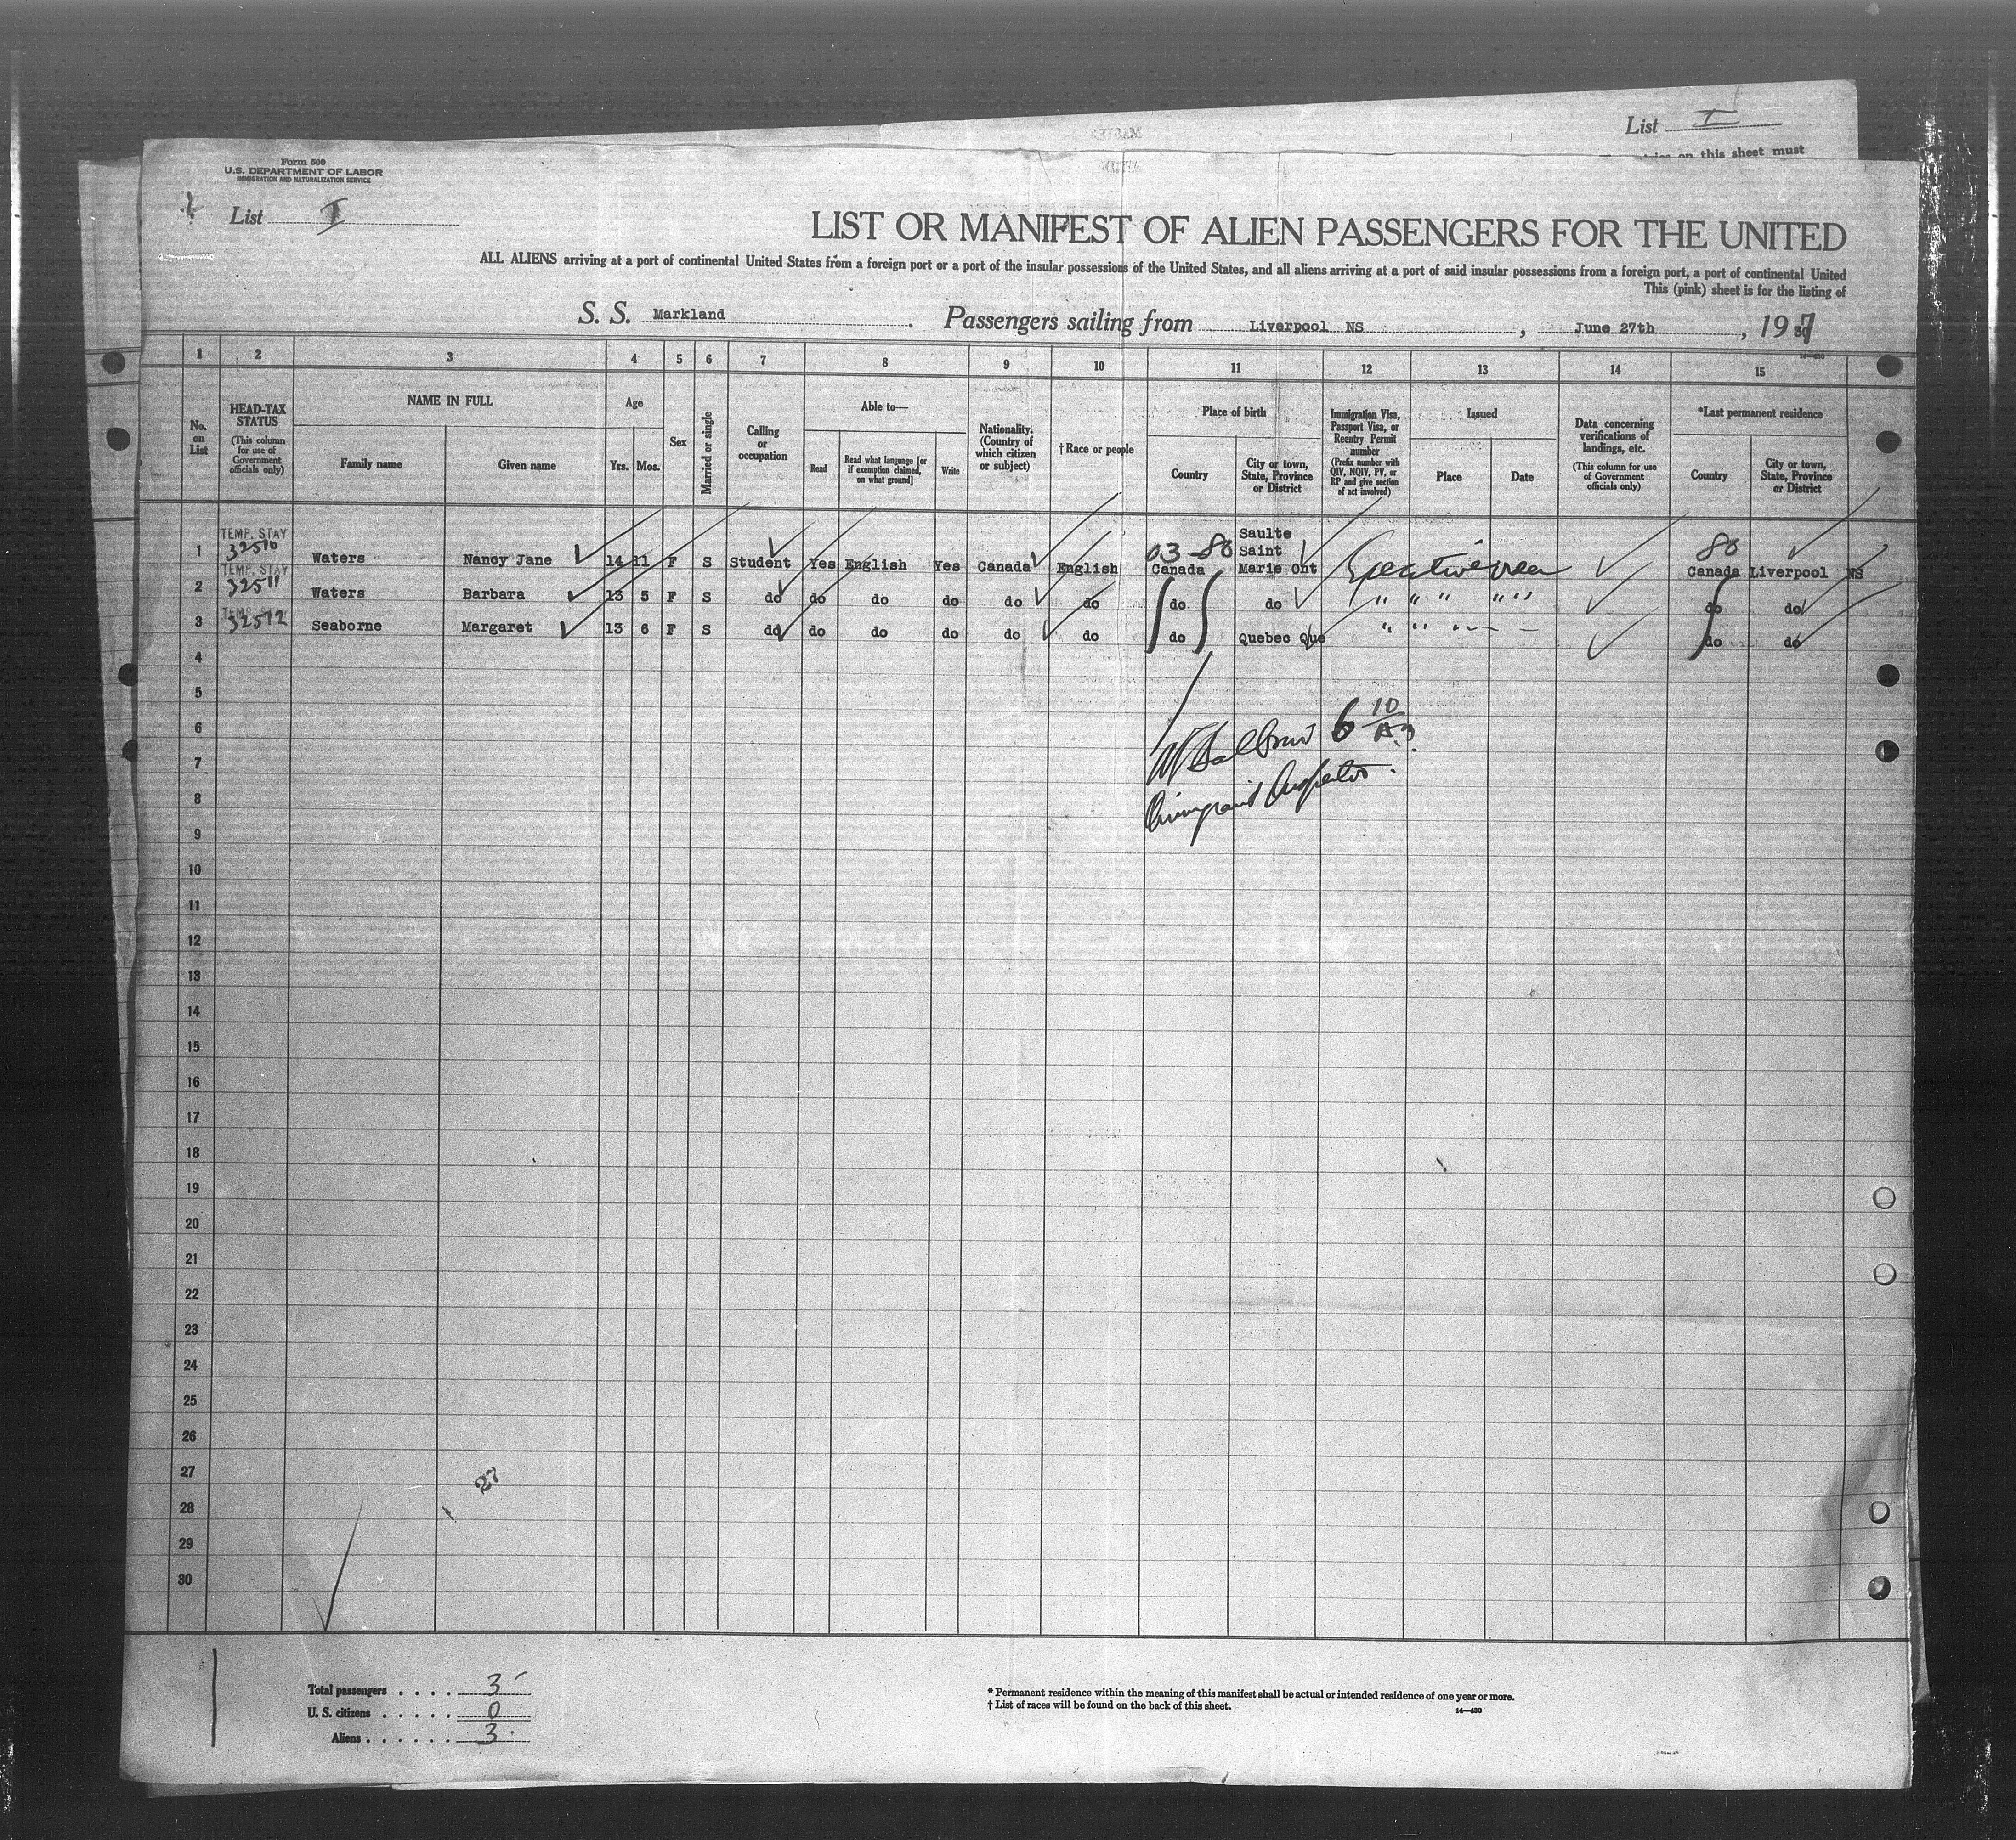 List I
entries on this sheet must
Form 500
U.S. DEPARTMENT OF LABOR
IMMIGRATION AND NATURALIZATION SERVICE
List I
LIST OR MANIFEST OF ALIEN PASSENGERS FOR THE UNITED
ALL ALIENS arriving at a port of continental United States from a foreign port or a port of the insular possessions of the United States, and all aliens arriving at a port of said insular possessions from a foreign port, a port of continental United
This (pink) sheet is for the listing of
S. S. Markland. Passengers sailing from Liverpool NS, June 27th, 1937
14—430
1 2 3 4 5 6 7 8 9 10 11 12 13 14 15
No. on List
HEAD-TAX STATUS
(This column for use of Government officials only)
NAME IN FULL
Family name
Given name
Age
Yrs.
Mos.
Sex
Married or single
Calling or occupation
Able to—
Read
Read what language [or if exemption claimed, on what ground]
Write
Nationality. (Country of which citizen or subject)
† Race or people
Place of birth
Country
City or town, State, Province or District
Immigration Visa, Passport Visa, or Reentry Permit number
(Prefix number with QIV, NQIV, PV, or RP and give section of act involved)
Issued
Place
Date
Data concerning verifications of landings, etc.
(This column for use of Government officials only)
*Last permanent residence
Country
City or town, State, Province or District
1 TEMP. STAY 32510 Waters Nancy Jane 14 11 F S Student Yes English Yes Canada English 03-80 Canada Saulte Saint Marie Ont 80 Canada Liverpool NS
2 TEMP. STAY 32511 Waters Barbara 13 5 F S do do do do do do do do " " " " " do do
3 TEMP. STAY 32512 Seaborne Margaret 13 6 F S do do do do do do do Quebec Que " " do do
4
5
6 6 10
7
8
9
10
11
12
13
14
15
16
17
18
19
20
21
22
23
24
25
26
27 27
28
29
30
Total passengers . . . . 3
U. S. citizens . . . . . 0
Aliens . . . . . . 3
* Permanent residence within the meaning of this manifest shall be actual or intended residence of one year or more.
† List of races will be found on the back of this sheet.
14—430